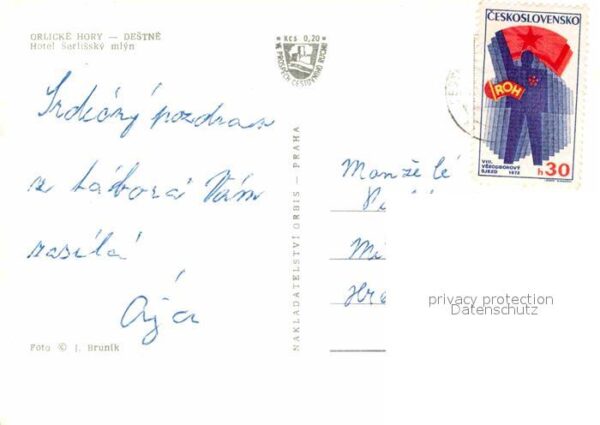 ORLICKÉ HORY — DEŠTNÉ
Hotel Šerlišský mlýn
Kčs 0,20
VE PROSPĚCH CESTOVNÍHO RUCHU
Srdečný pozdrav
z tábora Vám
zasílá
Foto © J. Bruník
NAKLADATELSTVÍ ORBIS — PRAHA
ČESKOSLOVENSKO
ROH
VIII.
VŠEODBOROVÝ
SJEZD 1972
h 30
Manželé
privacy protection
Datenschutz